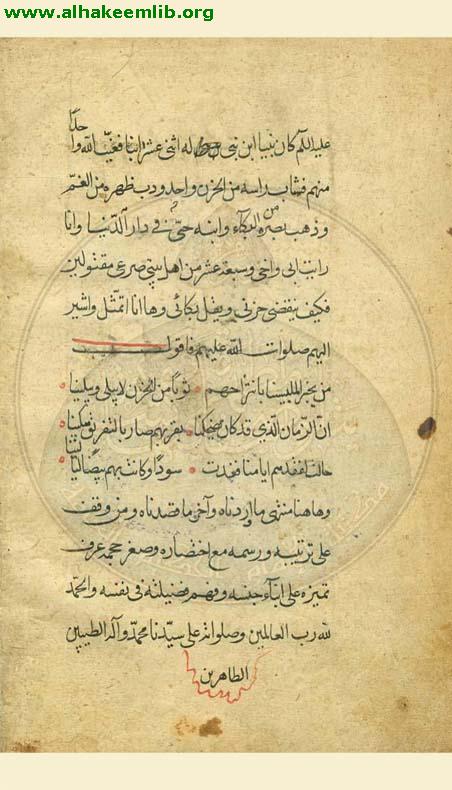 www.alhakeemlib.org
عليه السلم كان نبيا ابن نبي له اثنى عشر ابنا فغيب الله واحدا
منهم فشاب راسه من الحزن واحدودب ظهره من الغم
وذهب بصره من البكآء وابنه حىّ في دار الدّنيا وانا
رايت ابى واخى وسبعة عشر من اهل بيتى صرعى مقتولين
فكيف ينقضى حزنى ويقل بكائى وها انا اتمثّل واشير
اليهم صلوات الله عليهم فاقول
من مخبر الملبسينا بانتزاحهم ثوبًا من الحزن لا يبلى ويبلينا
انّ الزّمان الّذى قد كان يضحكنا بقربهم صار بالتفريق يبكينا
حالت لفقدهم ايامنا فغدت سودًا وكانت بهم بيضًا ليالينا
وها هنا منتهى ما اردناه وآخر ما قصدناه ومن وقف
على ترتيبه ورسمه مع اختصاره وصغر حجمه عرف
تميزه على ابنآء جنسه وفهم فضيلته فى نفسه والحمد
لله رب العالمين وصلواته على سيّدنا محمّد وآله الطيبين
الطاهرين